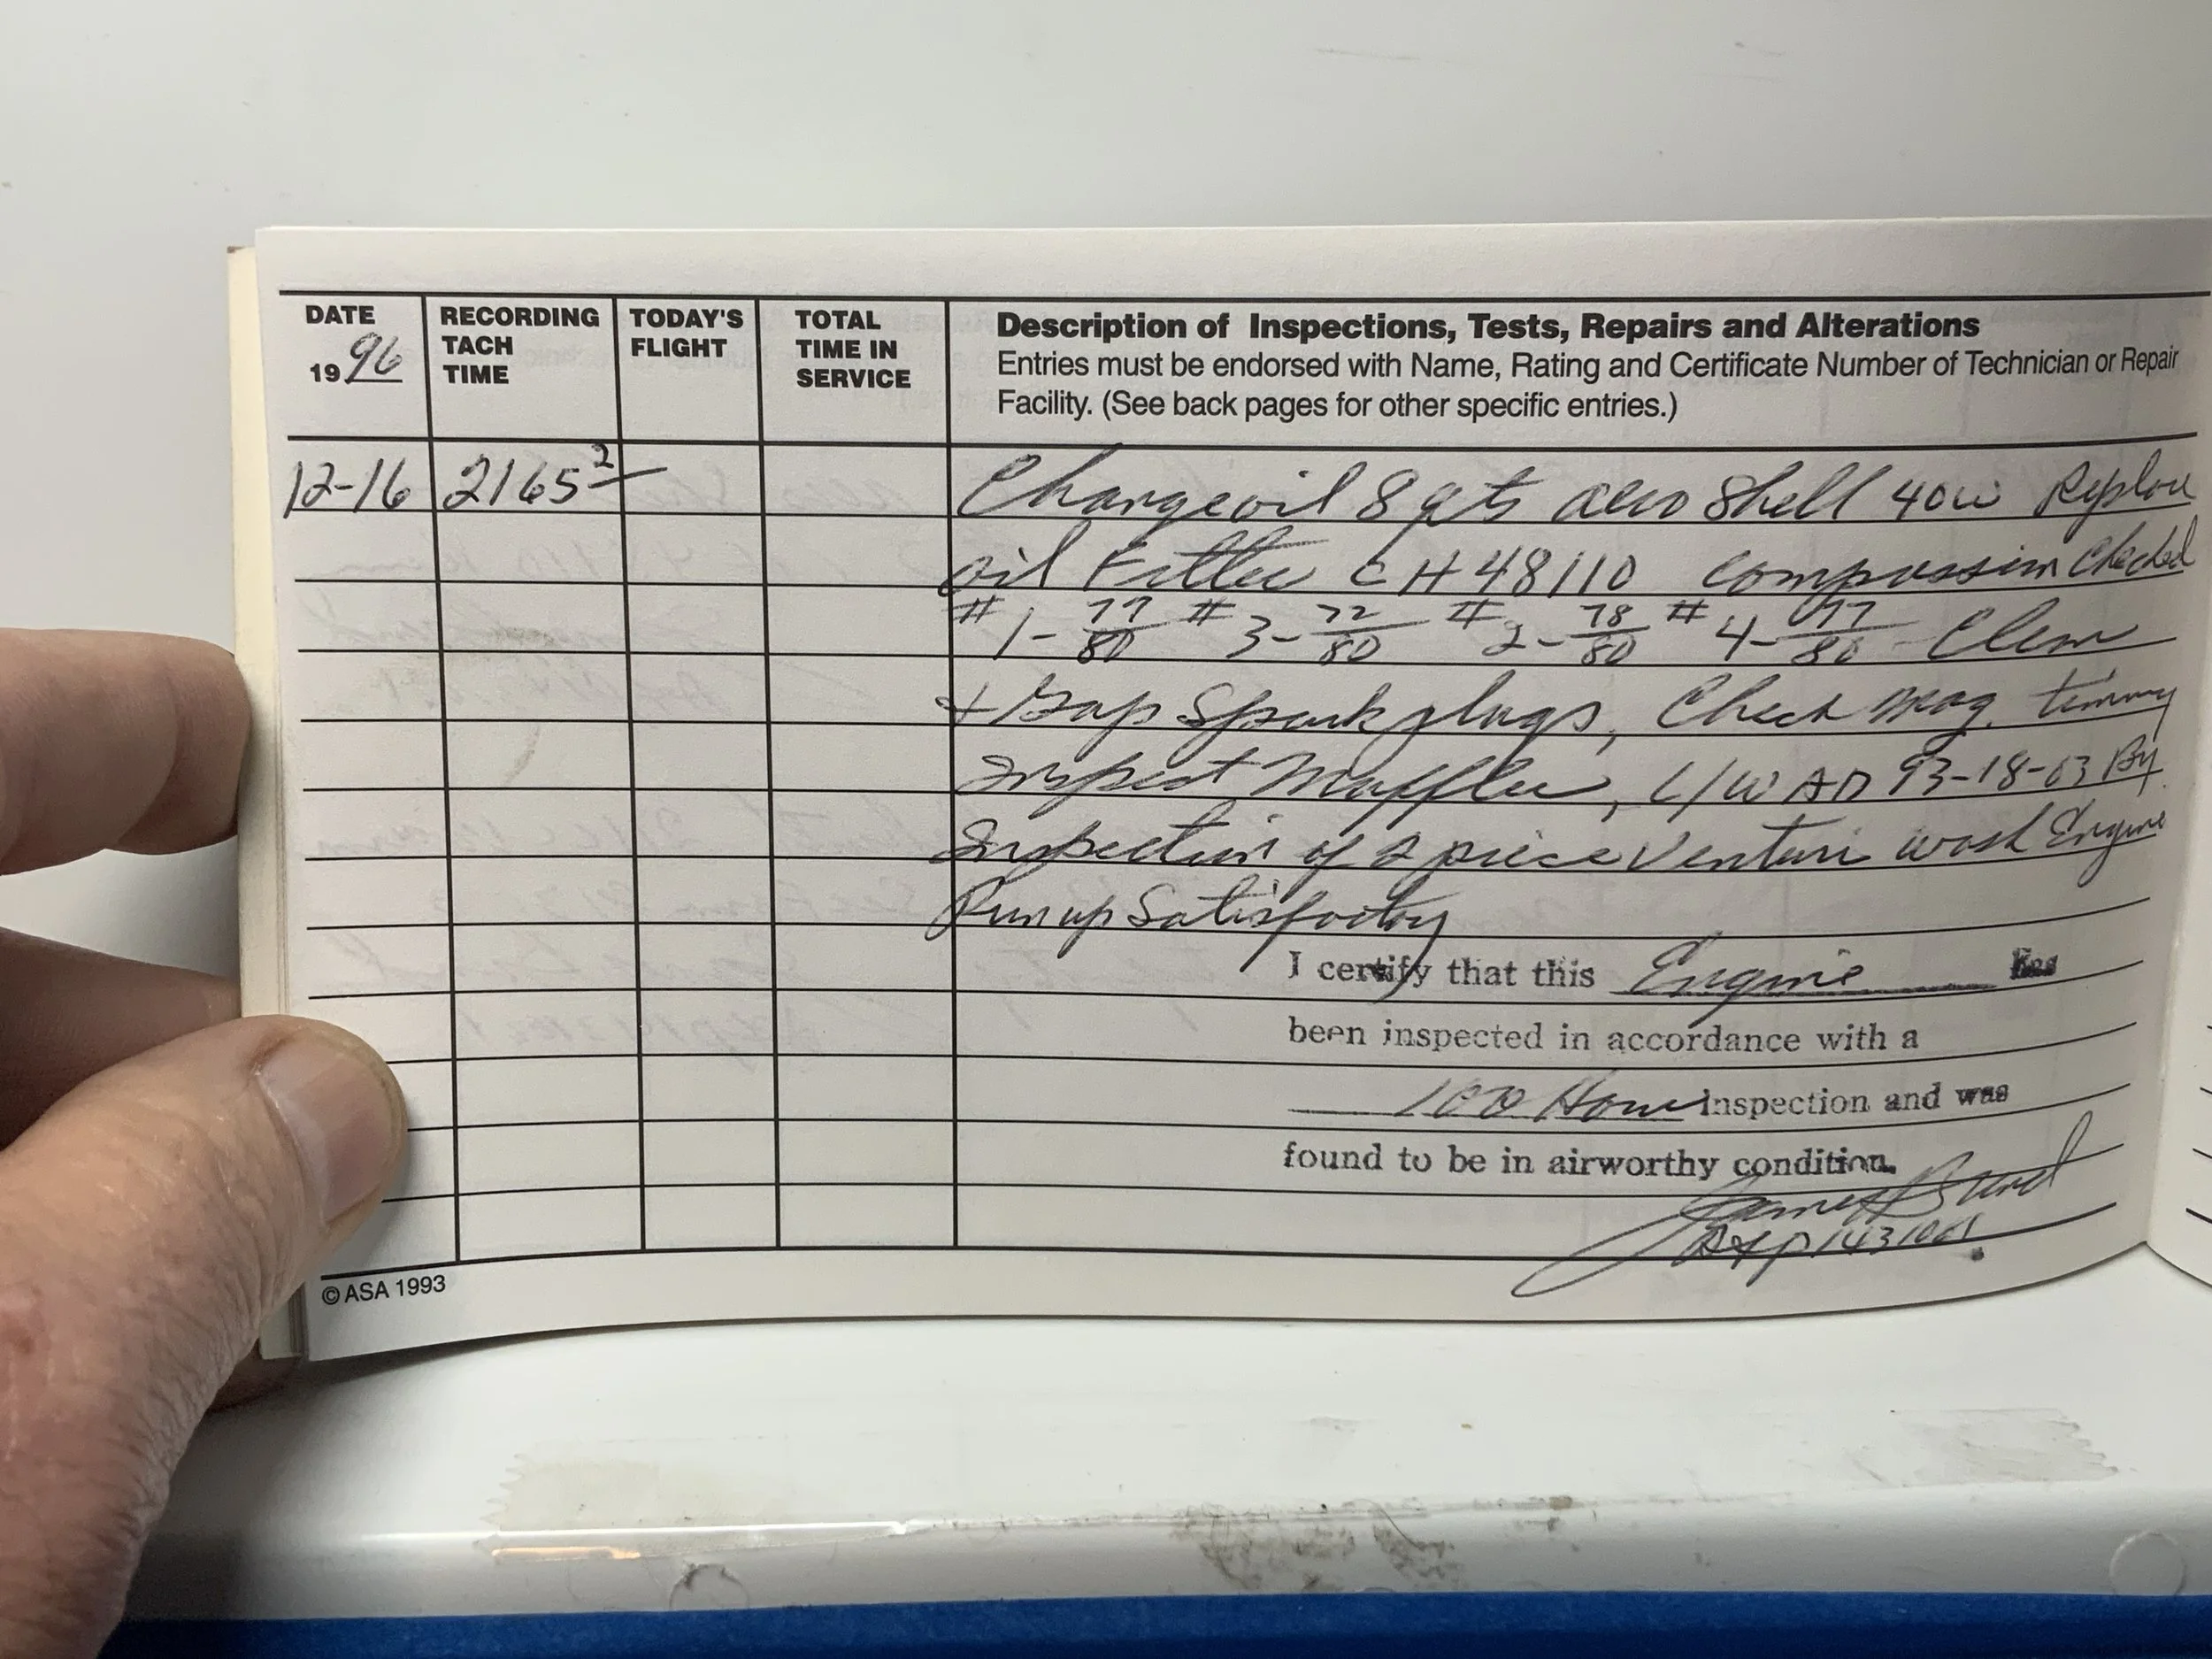 DATE
19 96
RECORDING
TACH
TIME
TODAY'S
FLIGHT
TOTAL
TIME IN
SERVICE
Description of Inspections, Tests, Repairs and Alterations
Entries must be endorsed with Name, Rating and Certificate Number of Technician or Repair
Facility. (See back pages for other specific entries.)
12-16 2165 2 Change oil 8 qts Aero Shell 40w Replace
oil Filter CH48110 compression checked
#1-77/80 #3-72/80 #2-78/80 #4-77/80 - Clean
+ Gap Spark plugs, Check mag. timing
Inspect Muffler, C/W AD 93-18-03 By
Inspection of 2 piece Venturi wash Engine
Run up Satisfactory
I certify that this Engine has
been inspected in accordance with a
100 Hour inspection and was
found to be in airworthy condition.
James
A&P
© ASA 1993